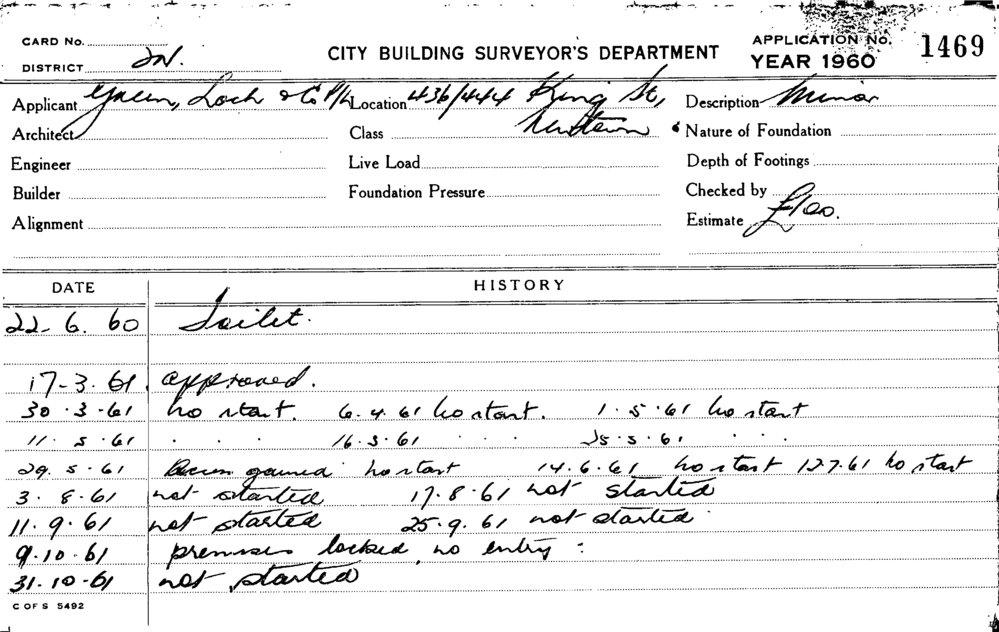 CARD No. CITY BUILDING SURVEYOR'S DEPARTMENT APPLICATION No. 1469
DISTRICT YEAR 1960
Applicant Loch & Co P/L Location 436/444 King St, Description Minor
Architect Class Newtown Nature of Foundation
Engineer Live Load Depth of Footings
Builder Foundation Pressure Checked by
Alignment Estimate £100.
DATE HISTORY
22-6.60 Toilet.
17-3.61. approved.
30.3.61 no start. 6.4.61 no start. 1.5.61 no start
11.5.61 . . . 16.5.61 . . . 25.5.61 . . .
29.5.61 gained no start 14.6.61 no start 12.7.61 no start
3.8.61 not started 17.8.61 not started
11.9.61 not started 25.9.61 not started
9.10.61 premises locked, no entry :
31.10.61 not started
C OF S 5492